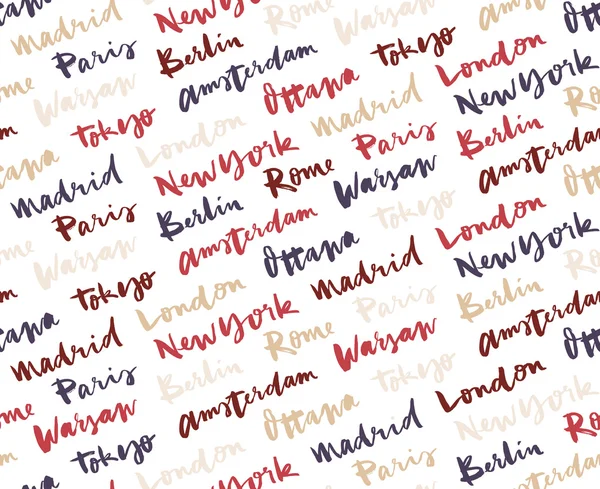 Madrid Rome Warsaw
Paris Berlin Tokyo London
Rome Warsaw Amsterdam Ottawa Madrid New York Rome
Tokyo London Paris Berlin
Ottawa Madrid New York Rome Warsaw Amsterdam Ottawa
Paris Berlin Tokyo London
Rome Warsaw Amsterdam Ottawa Madrid New York Rome
Tokyo London Paris Berlin
Ottawa Madrid New York Rome Warsaw Amsterdam Ottawa
Paris Berlin Tokyo London
Rome Warsaw Amsterdam Ottawa Madrid New York Rome
Tokyo London Paris Berlin
New York Amsterdam